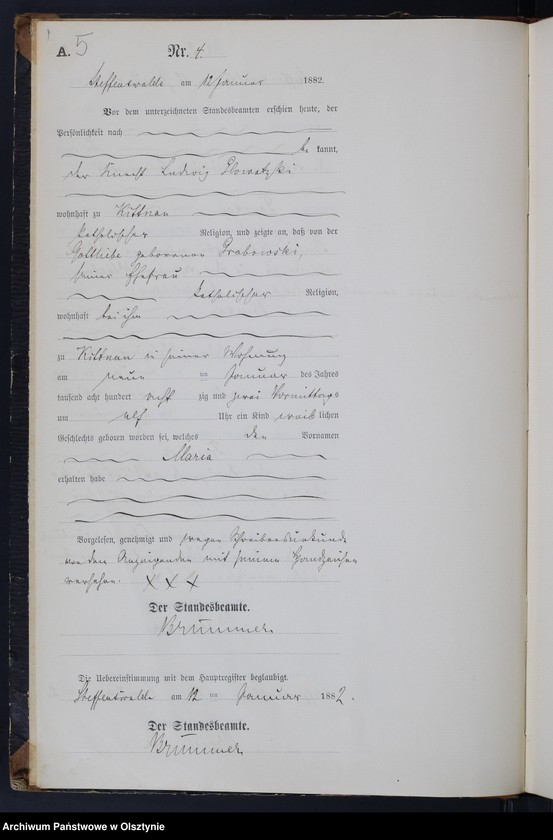 A. 5 Nr. 4.
Steffenswalde am 12 Januar 1882.
Vor dem unterzeichneten Standesbeamten erschien heute, der
Persönlichkeit nach
be kannt,
der Knecht Ludwig
wohnhaft zu
katholischer Religion, und zeigte an, daß von der
Gottliebe geborenen Grabowski,
seiner Ehefrau
katholischer Religion,
wohnhaft bei ihm
zu in seiner Wohnung
am neun ten Januar des Jahres
tausend acht hundert acht zig und zwei Vormittags
um elf Uhr ein Kind weib lichen
Geschlechts geboren worden sei, welches den Vornamen
Maria
erhalten habe
Vorgelesen, genehmigt und wegen
von dem Anzeigenden mit seinem Handzeichen
versehen. X X X
Der Standesbeamte.
Brümmer.
Die Uebereinstimmung mit dem Hauptregister beglaubigt.
Steffenswalde am 12 ten Januar 1882.
Der Standesbeamte.
Brümmer.
Archiwum Państwowe w Olsztynie